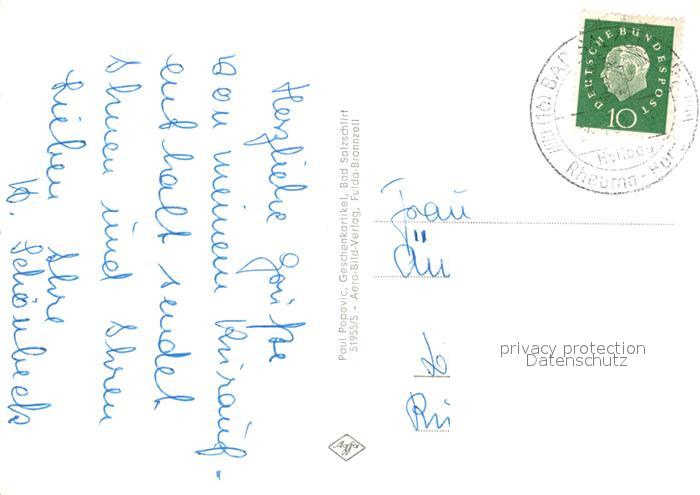 Herzliche Grüße
von meinem Kurauf-
enthalt sendet
Ihnen und Ihren
Lieben Ihre
H. Schönbeck
Paul Popovic, Geschenkartikel, Bad Salzschlirf
51955/5 - Aero-Bild-Verlag, Fulda-Bronnzell
Agfa
DEUTSCHE BUNDESPOST
10
(16) BAD
Heilbad
Rheuma-
Frau
privacy protection
Datenschutz